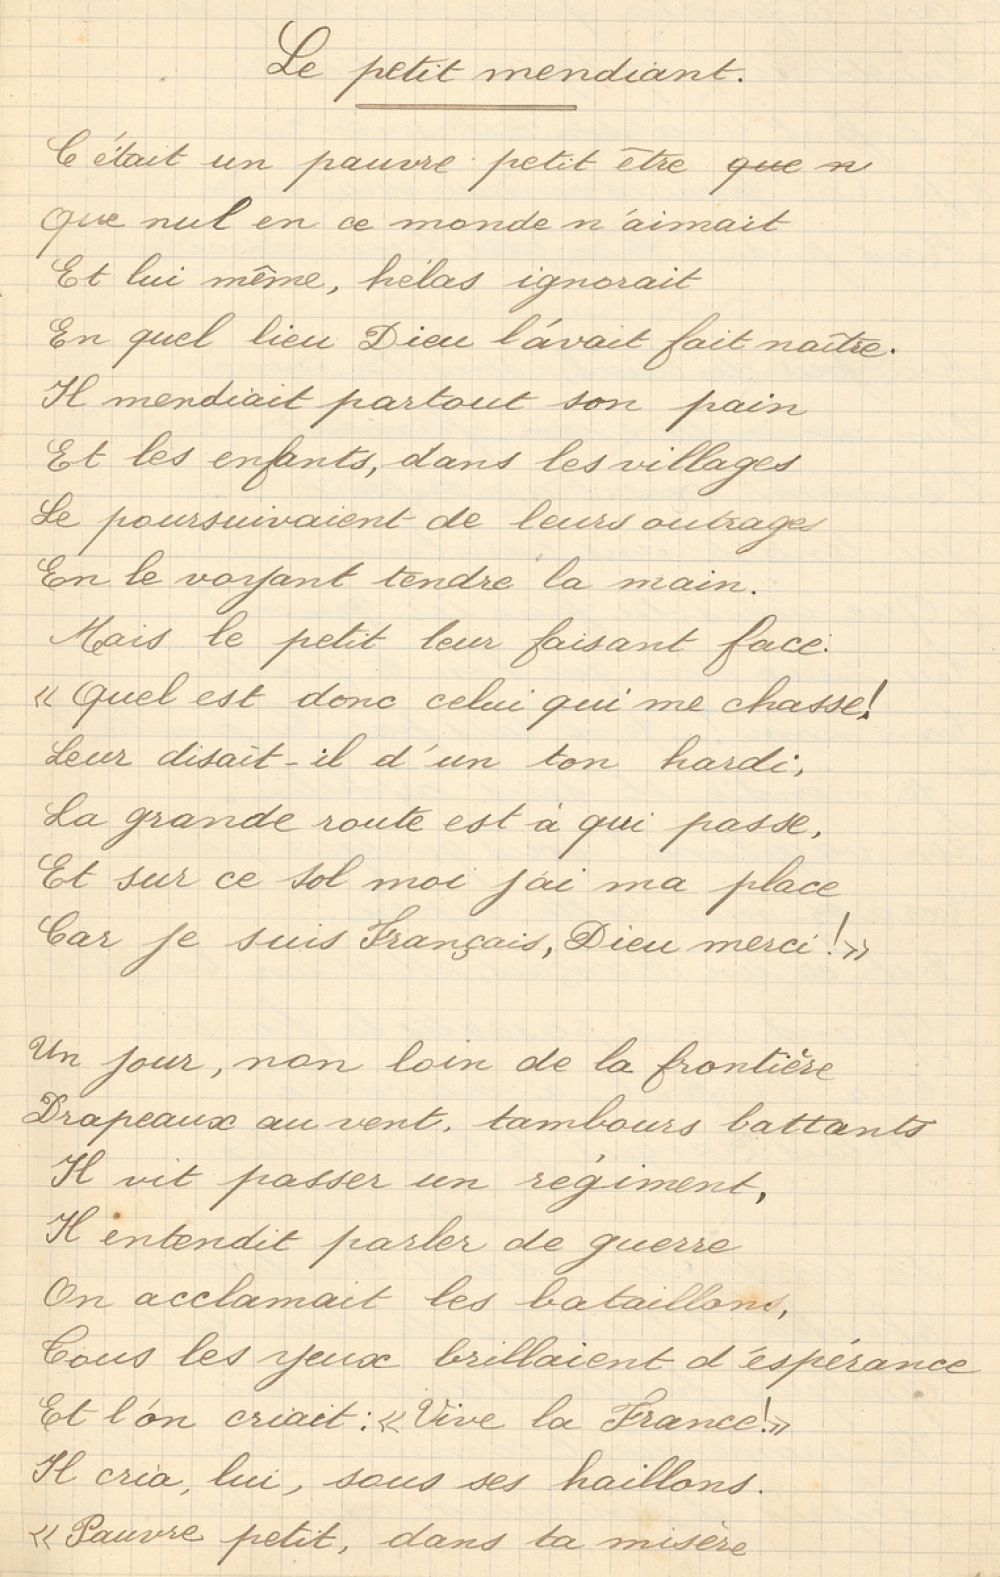 Le petit mendiant.
C'était un pauvre petit être que n
Que nul en ce monde n'aimait
Et lui même, hélas ignorait
En quel lieu Dieu l'avait fait naître.
Il mendiait partout son pain
Et les enfants, dans les villages
Le poursuivaient de leurs outrages
En le voyant tendre la main.
Mais le petit leur faisant face:
« Quel est donc celui qui me chasse!
Leur disait-il d'un ton hardi,
La grande route est à qui passe,
Et sur ce sol moi j'ai ma place
Car je suis Français, Dieu merci! »
Un jour, non loin de la frontière
Drapeaux au vent, tambours battants
Il vit passer un régiment,
Il entendit parler de guerre
On acclamait les bataillons,
Tous les yeux brillaient d'espérance
Et l'on criait: « Vive la France! »
Il cria, lui, sous ses haillons.
« Pauvre petit, dans ta misère